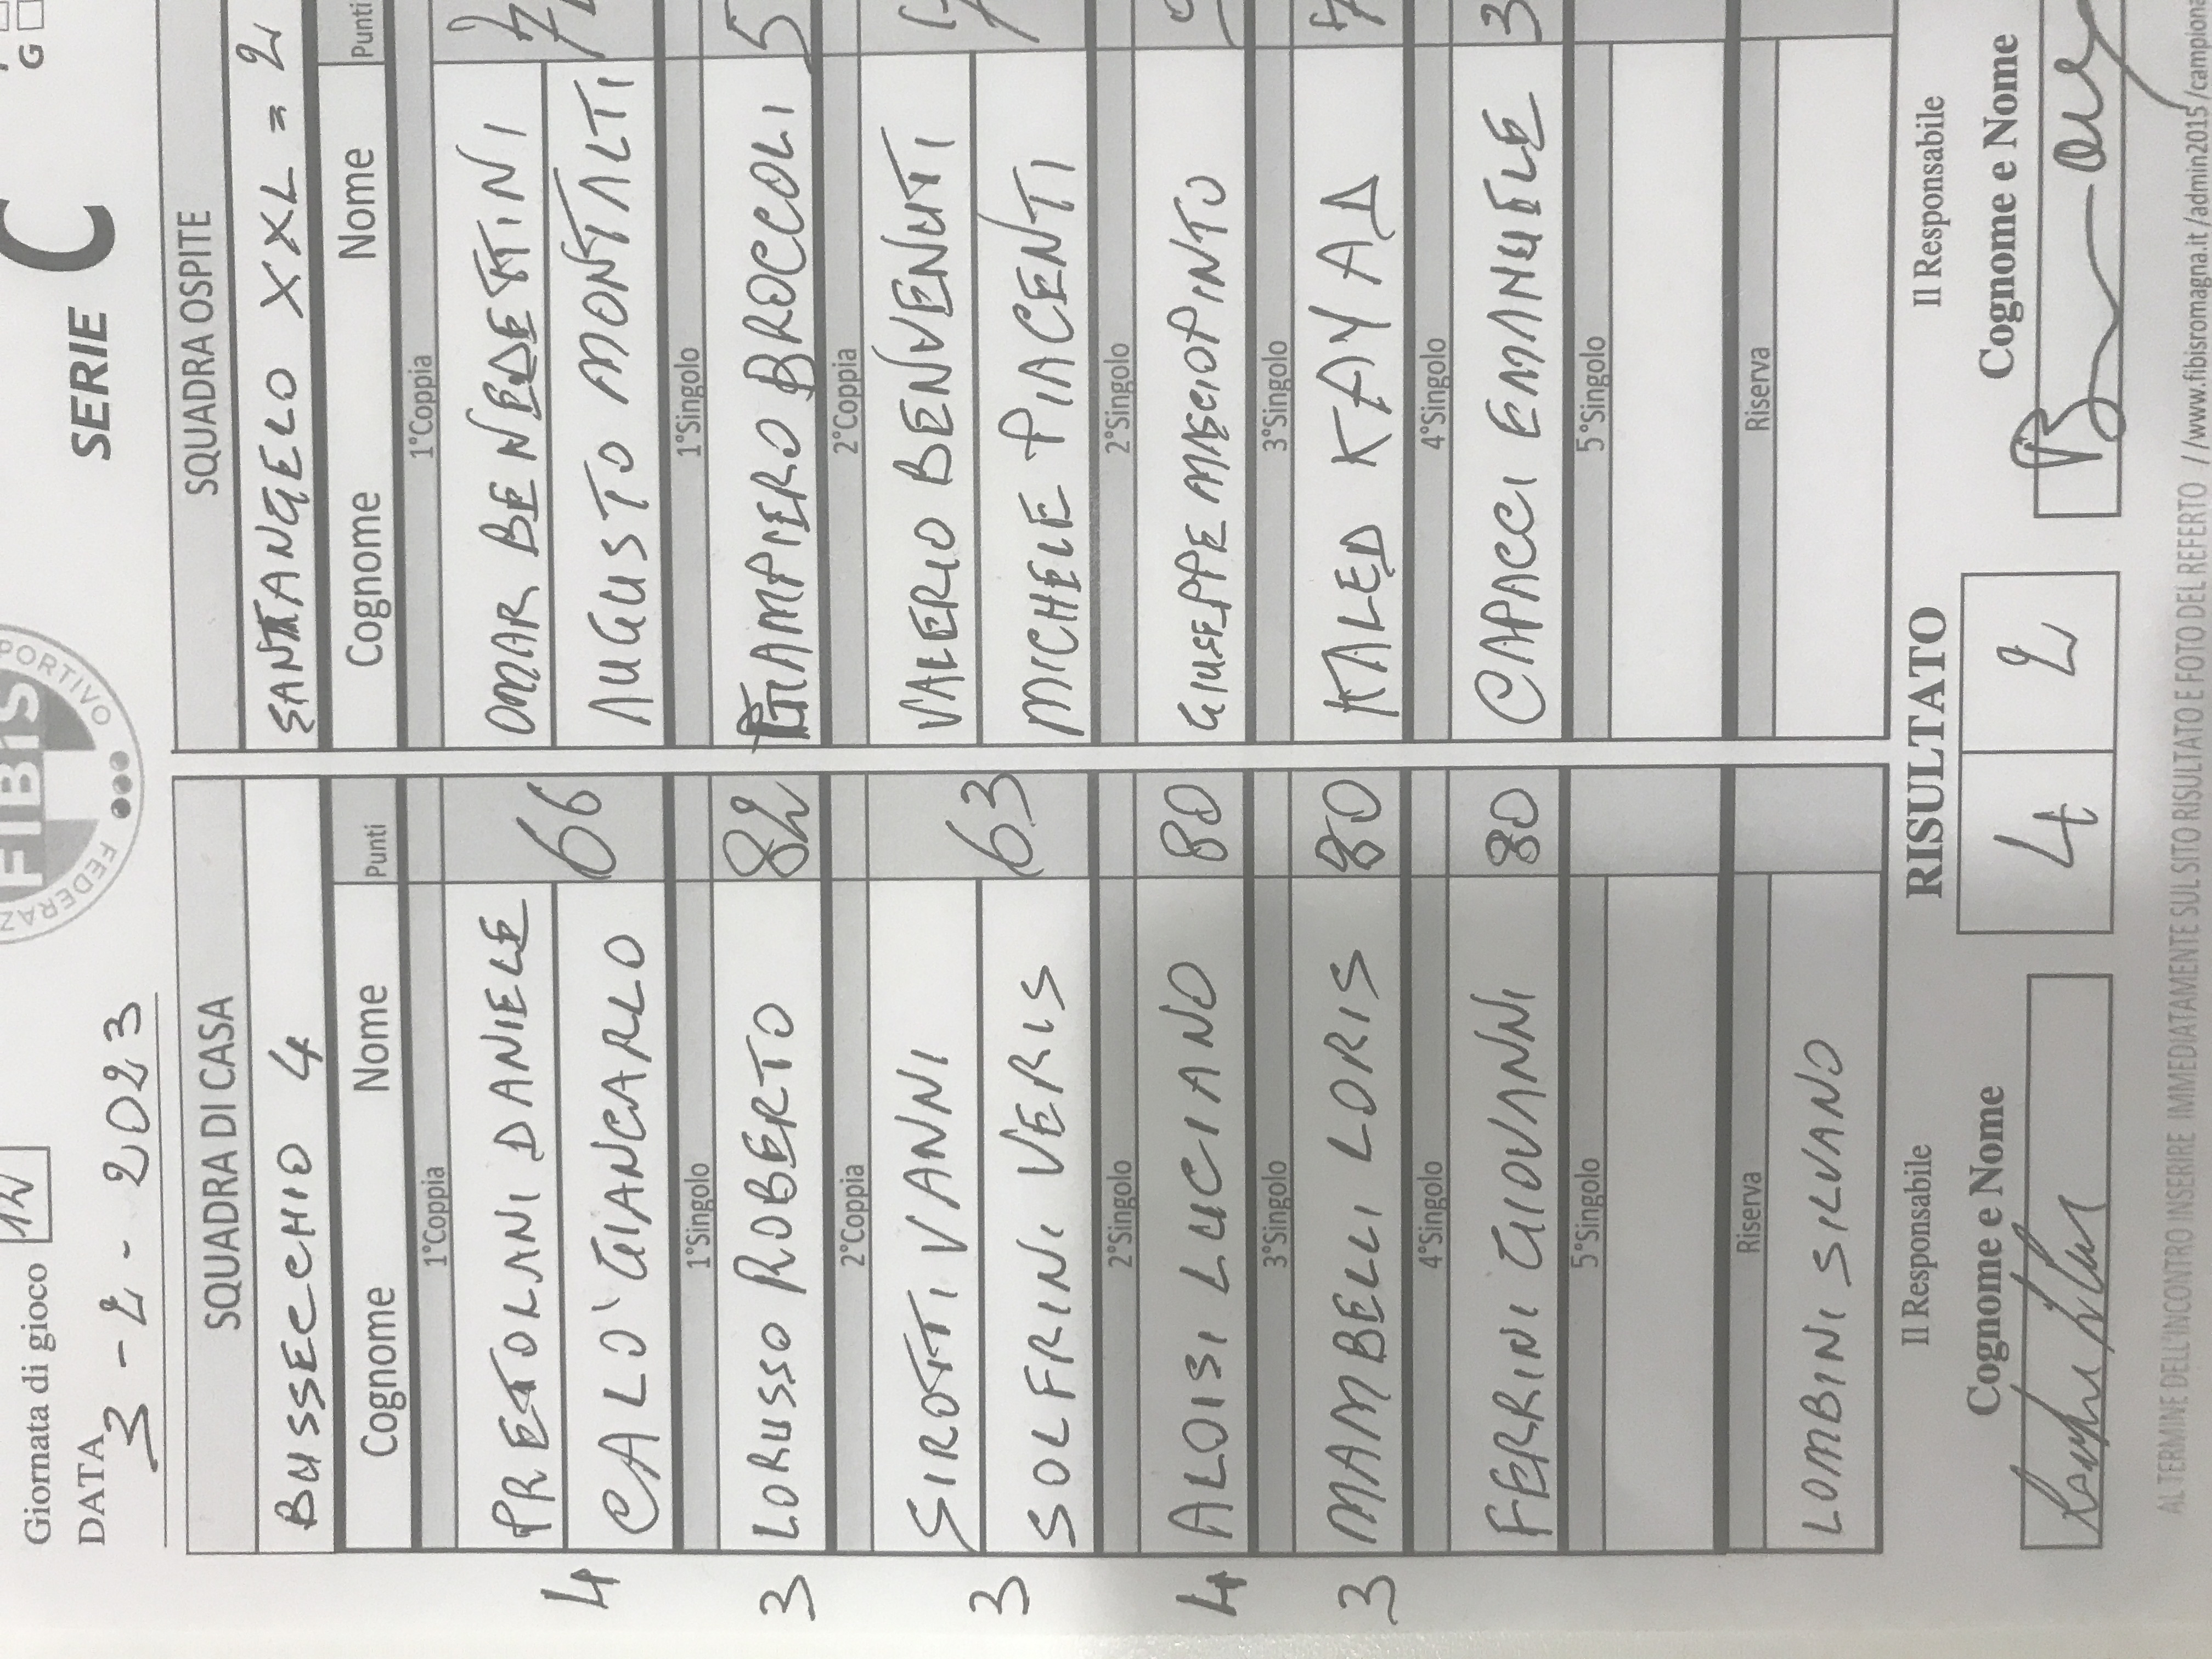 Giornata di gioco 12
DATA 3-2-2023
FEDERAZ
FIBIS
PORTIVO
SERIE C
G
SQUADRA DI CASA
BUSSECCHIO 4
Cognome Nome Punti
1°Coppia
PRETOLANI DANIELE
CALO' GIANCARLO 66
4
1°Singolo
LORUSSO ROBERTO 82
3
2°Coppia
SIROTTI VANNI
SOLFRINI VERIS 63
3
2°Singolo
ALOISI LUCIANO 80
4
3°Singolo
MAMBELLI LORIS 80
3
4°Singolo
FERRINI GIOVANNI 80
5°Singolo
Riserva
LOMBINI SILVANO
SQUADRA OSPITE
SANTANGELO XXL = 2
Cognome Nome Punti
1°Coppia
OMAR BENEDETTINI
AUGUSTO MONTALTI
1°Singolo
GIAMPIERO BROCCOLI 5
2°Coppia
VALERIO BENVENUTI
MICHELE PIACENTI
2°Singolo
GIUSEPPE MASCIOPINTO
3°Singolo
KALED KAYAD
4°Singolo
CAPACCI EMANUELE 3
5°Singolo
Riserva
Il Responsabile
Cognome e Nome
RISULTATO
4 2
Il Responsabile
Cognome e Nome
AL TERMINE DELL'INCONTRO INSERIRE IMMEDIATAMENTE SUL SITO RISULTATO E FOTO DEL REFERTO //www.fibisromagna.it/admin2015/campiona